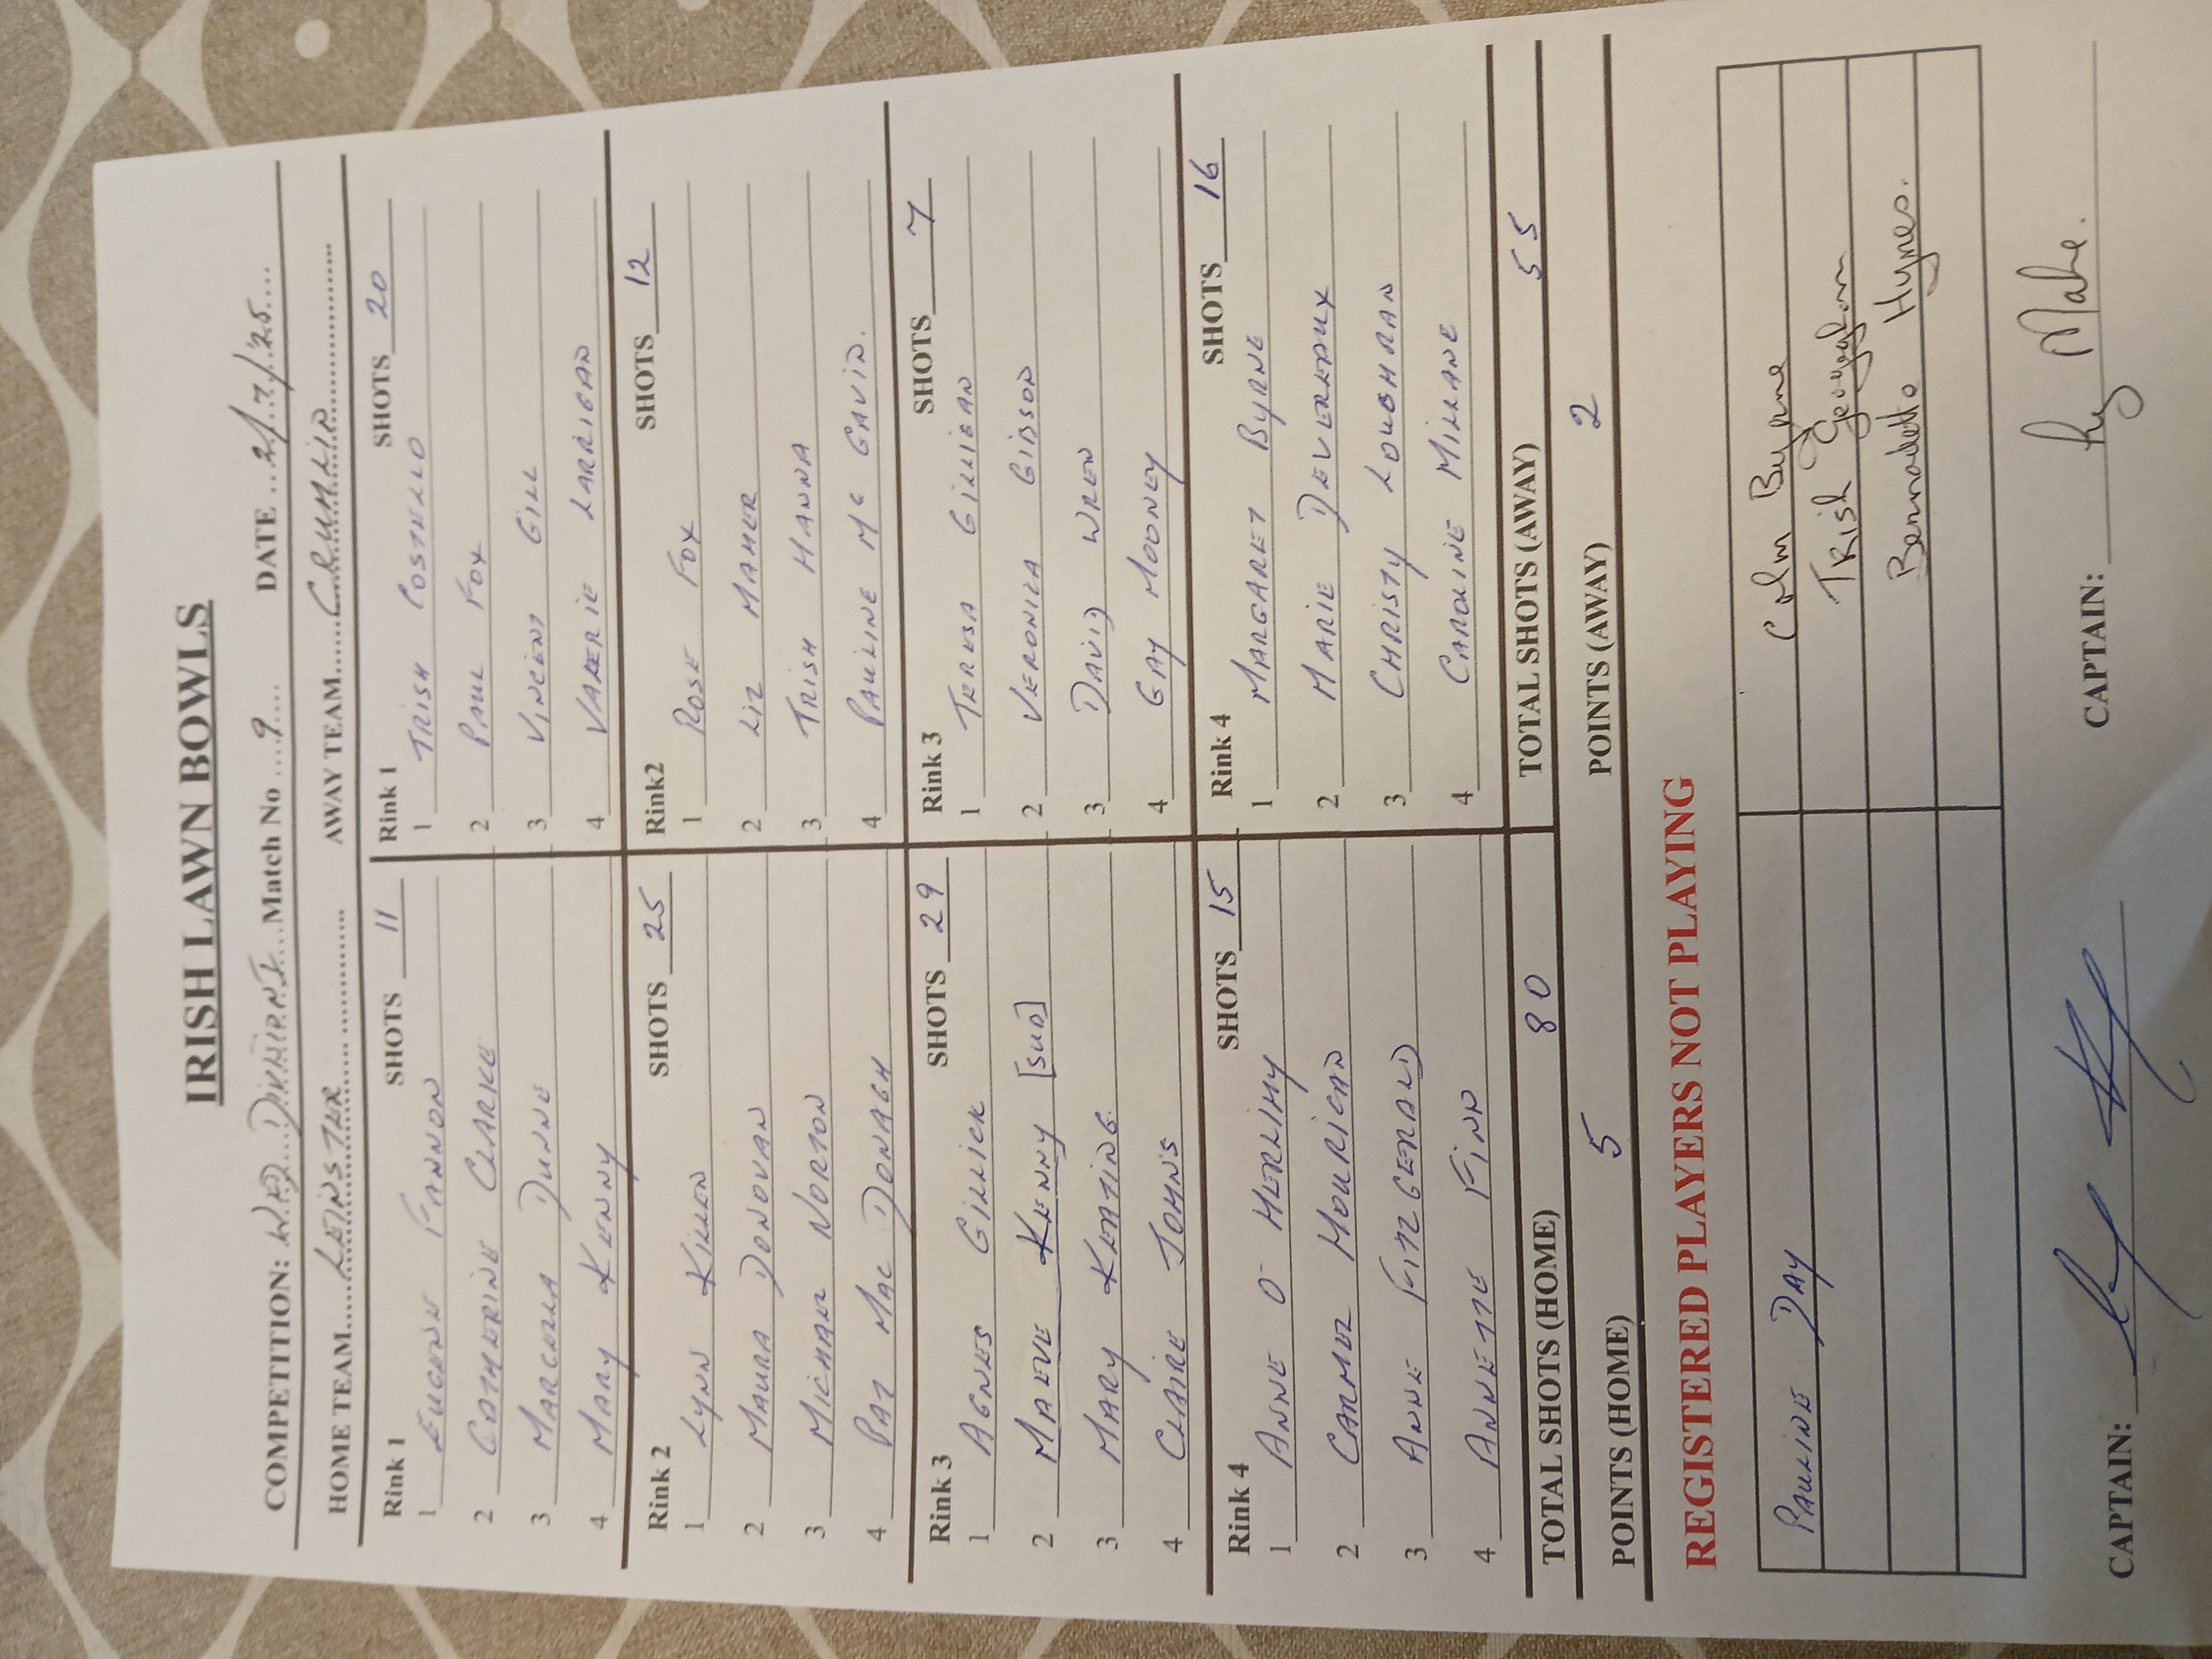 IRISH LAWN BOWLS
COMPETITION: Match No ...9.... DATE ..21/.7/.'25....
HOME TEAM....LEINSTER AWAY TEAM.....CRUMLIN
Rink 1 SHOTS 11
1 EUGENE FANNON
2 CATHERINE CLARKE
3 MARCELLA DUNNE
4 MARY KENNY
Rink 1 SHOTS 20
1 TRISH COSTELLO
2 PAUL FOX
3 VINCENT GILL
4 VALERIE LARRIGAN
Rink 2 SHOTS 25
1 LYNN KILLEN
2 MAURA DONOVAN
3 MICHAEL NORTON
4 PAT MAC DONAGH
Rink2 SHOTS 12
1 ROSE FOX
2 LIZ MAHER
3 TRISH HANNA
4 PAULINE MC GAVIN.
Rink 3 SHOTS 29
1 AGNES GILLICK
2 MAEVE KENNY [SUB]
3 MARY KEATING
4 CLAIRE JOHNS
Rink 3 SHOTS 7
1 TERESA GILLIGAN
2 VERONICA GIBSON
3 DAVID WREN
4 GAY MOONEY
Rink 4 SHOTS 15
1 ANNE O HERLIHY
2 CARMEL HOURICAN
3 ANNE FITZGERALD
4 ANNETTE FINN
Rink 4 SHOTS 16
1 MARGARET BYRNE
2 MARIE DEVEREAUX
3 CHRISTY LOUGHRAN
4 CAROLINE MILLANE
TOTAL SHOTS (HOME) 80 TOTAL SHOTS (AWAY) 55
POINTS (HOME) 5 POINTS (AWAY) 2
REGISTERED PLAYERS NOT PLAYING
PAULINE DAY Colm Byrne
TRish Geoghan
Bernadette Hynes.
CAPTAIN: CAPTAIN: